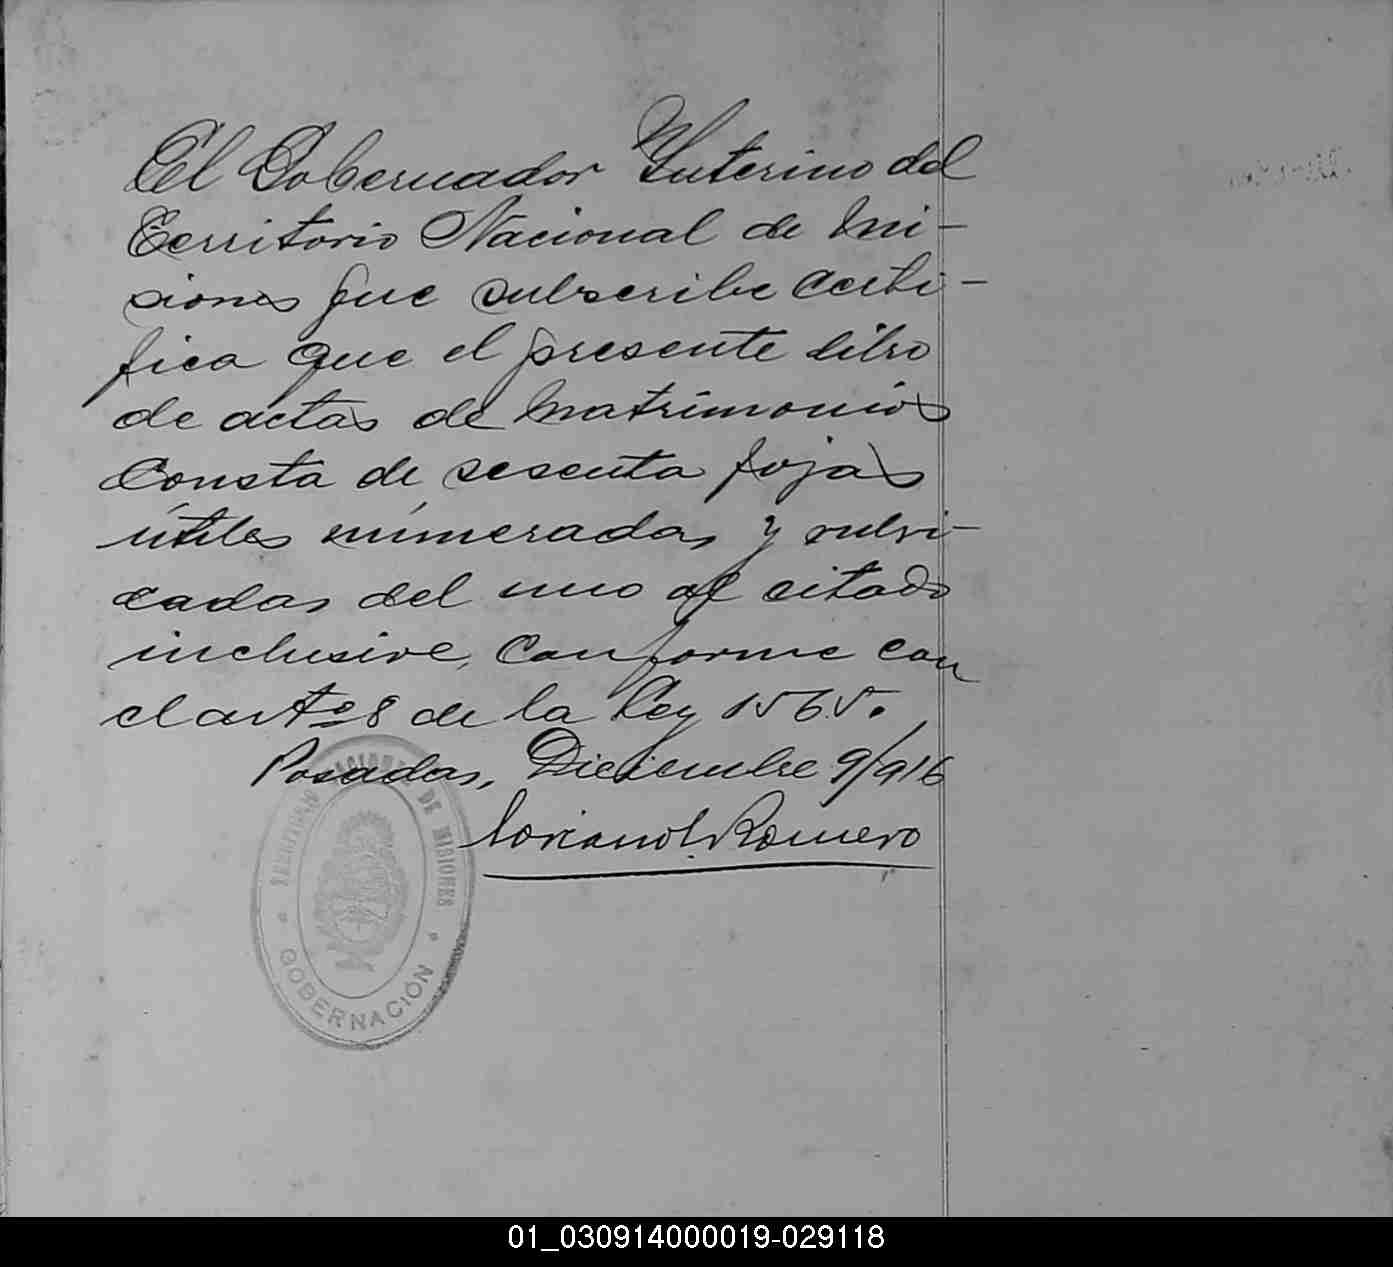 El Gobernador Interino del
Territorio Nacional de Mi-
siones que subscribe certi-
fica que el presente libro
de actas de Matrimonios
Consta de sesenta fojas
útiles númeradas y rubri-
cadas del uno al citado
inclusive, conforme con
el artº 8 de la Ley 1565.
Posadas, Diciembre 9/916
Romero
TERRITORIO NACIONAL DE MISIONES
GOBERNACIÓN
01_030914000019-029118